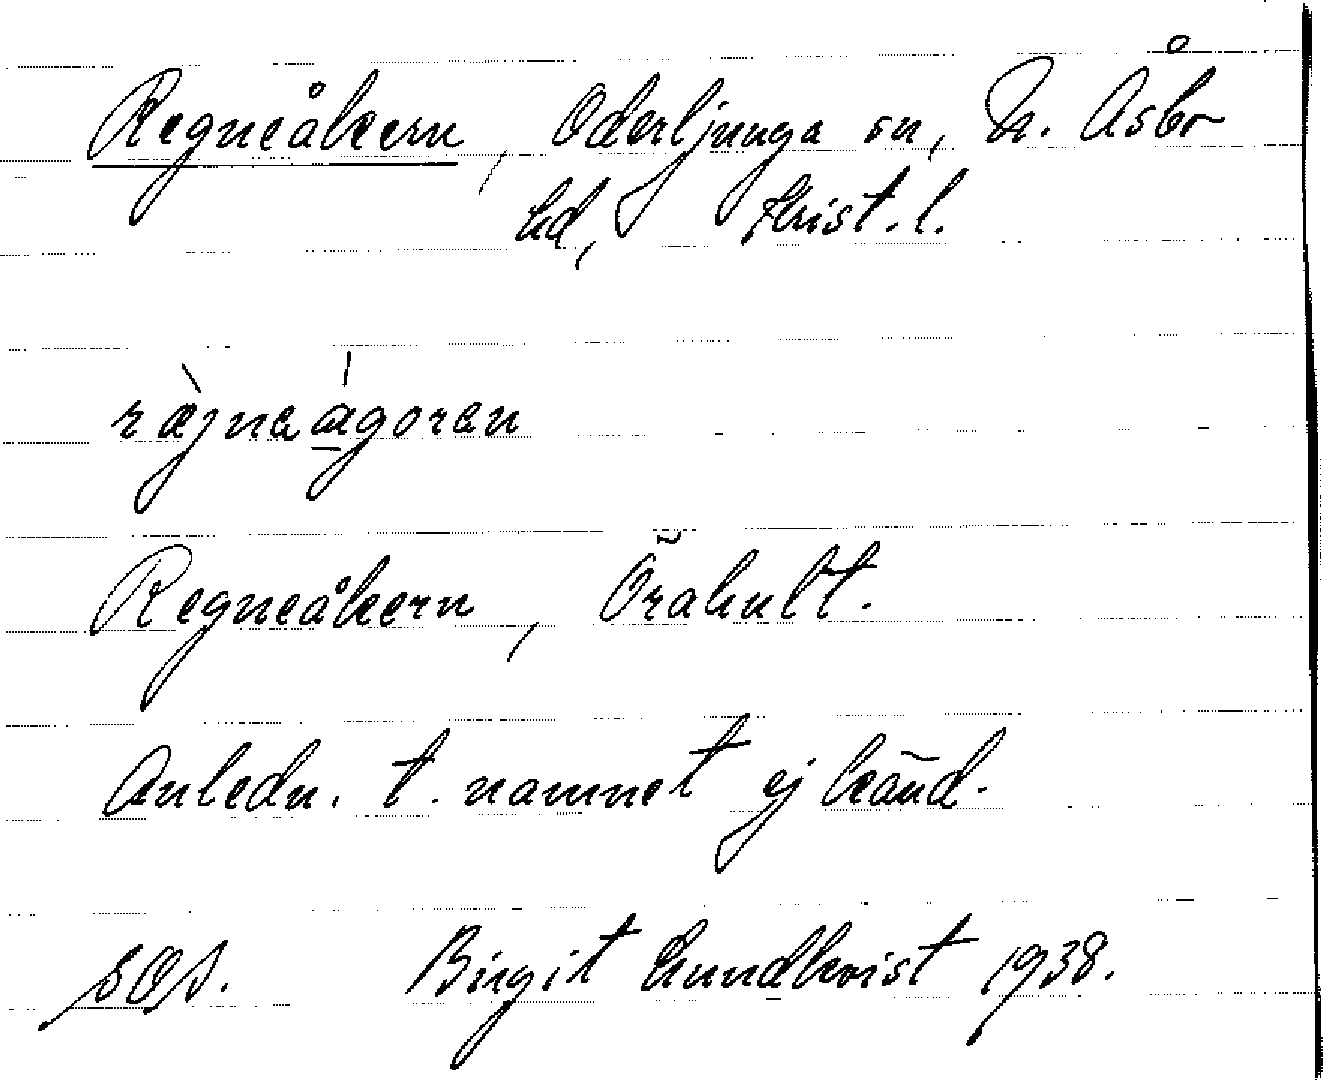 Regneåkern, Oderljunga sn, N. Åsbo
hd, Krist. l.
ræ̀jnaágoren
Regneåkern, Örahult.
Anledn. t. namnet ej känd.
Birgit Lundkvist 1938.